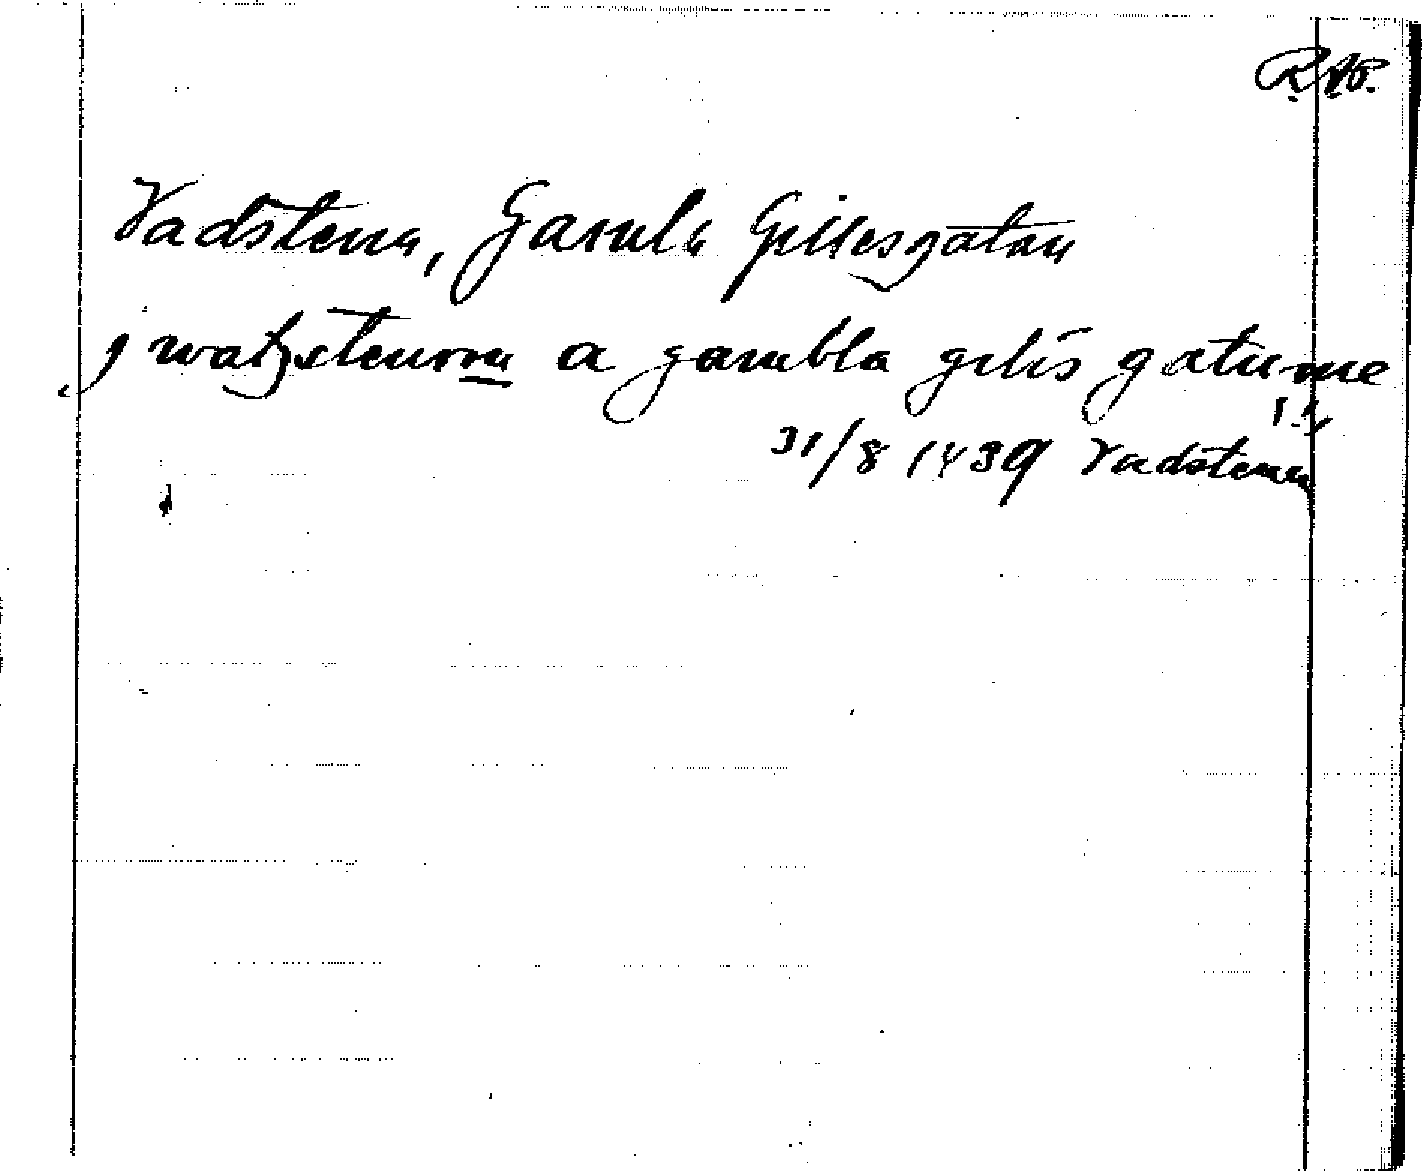 R.A.P.
Vadstena, Gamla Gillesgatan
j watzstenom a gambla gilis gatunne
31/8 1439 Vadstena